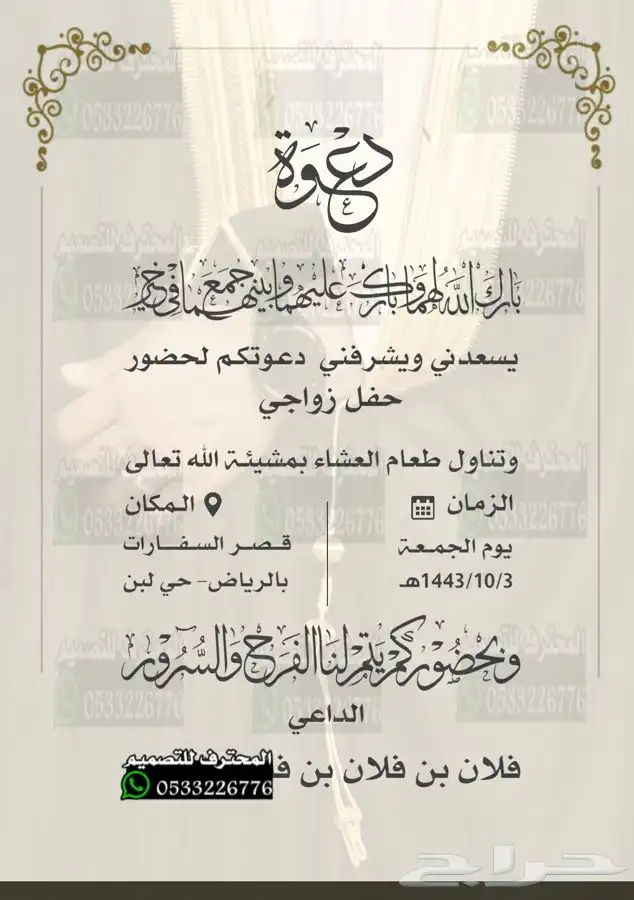 دعوة
بارك الله لهما وبارك عليهما وجمع بينهما في خير
يسعدني ويشرفني دعوتكم لحضور
حفل زواجي
وتناول طعام العشاء بمشيئة الله تعالى
الزمان
يوم الجمعة
1443/10/3هـ
المكان
قصر السفارات
بالرياض- حي لبن
وبحضوركم يتم لنا الفرح والسرور
الداعي
فلان بن فلان بن
المحترف للتصميم
0533226776
حراج